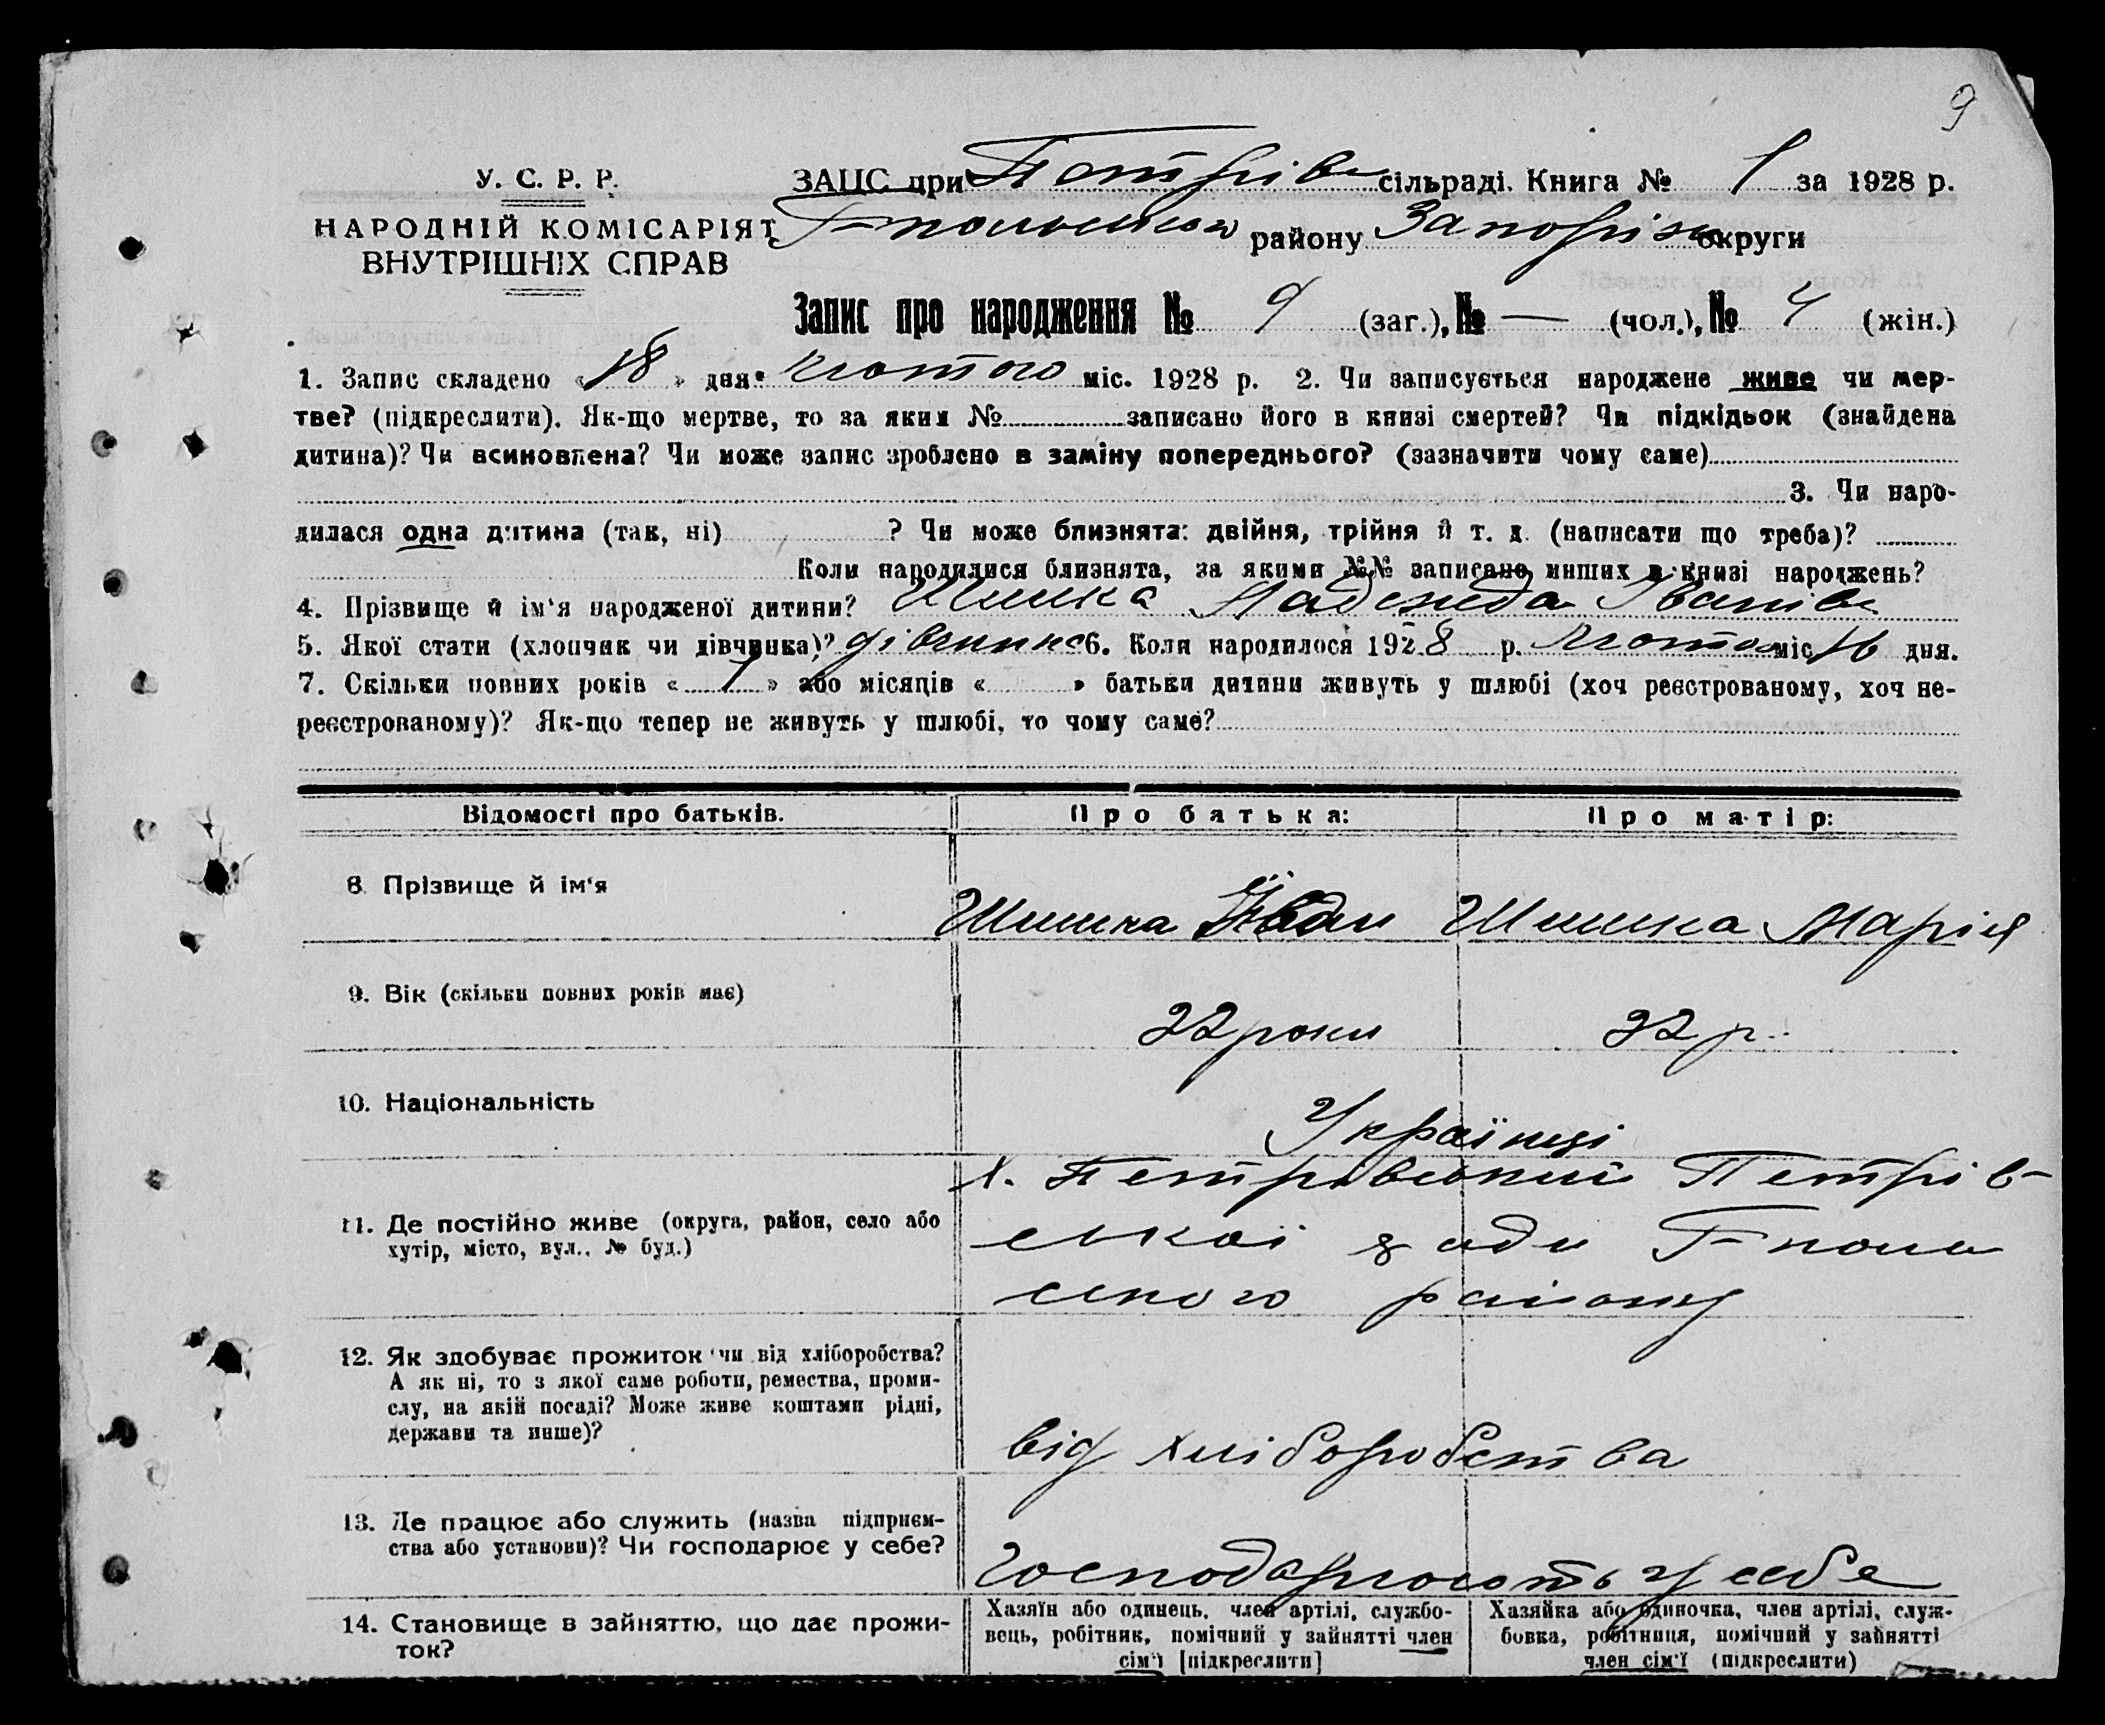 9
У. С. Р. Р.
НАРОДНІЙ КОМІСАРІЯТ
ВНУТРІШНІХ СПРАВ
ЗАЦС при Петрівс сільраді. Книга № 1 за 1928 р.
Г-польськ району Запоріз округи
Запис про народження № 9 (заг.), № — (чол.), № 4 (жін.)
1. Запис складено « 18 » дня лютого міс. 1928 р. 2. Чи записується народжене живе чи мер-
тве? (підкреслити). Як-що мертве, то за яким № записано його в книзі смертей? Чи підкідьок (знайдена
дитина)? Чи всиновлена? Чи може запис зроблено в заміну попереднього? (зазначити чому саме)
3. Чи наро-
дилася одна дитина (так, ні) ? Чи може близнята: двійня, трійня й т. д. (написати що треба)?
Коли народилися близнята, за якими №№ записано инших в книзі народжень?
4. Прізвище й ім'я народженої дитини? Шишка Надежда Іванівс
5. Якої стати (хлопчик чи дівчинка)? дівчинка 6. Коли народилося 1928 р. лютого міс. 16 дня.
7. Скільки повних років « 1 » або місяців « » батьки дитини живуть у шлюбі (хоч реєстрованому, хоч не-
реєстрованому)? Як-що тепер не живуть у шлюбі, то чому саме?
Відомості про батьків. Про батька: Про матір:
8 Прізвище й ім'я Шишка Шишка Марія
9. Вік (скільки повних років має) 22 роки 22 р.
10. Національність Українці
11. Де постійно живе (округа, район, село або
хутір, місто, вул., № буд.)
х. Петрівський Петрів-
ської ради Г-поль
ського району
12. Як здобуває прожиток чи від хліборобства?
А як ні, то з якої саме роботи, ремества, проми-
слу, на якій посаді? Може живе коштами рідні,
держави та инше)?
від хліборобства
13. Де працює або служить (назва підприєм-
ства або установи)? Чи господарює у себе?
господарюють у себе
14. Становище в зайняттю, що дає прожи-
ток?
Хазяїн або одинець, член артілі, службо-
вець, робітник, помічний у зайнятті член
сім'ї [підкреслити]
Хазяйка або одиночка, член артілі, служ-
бовка, робітниця, помічний у зайнятті
член сім'ї (підкреслити)